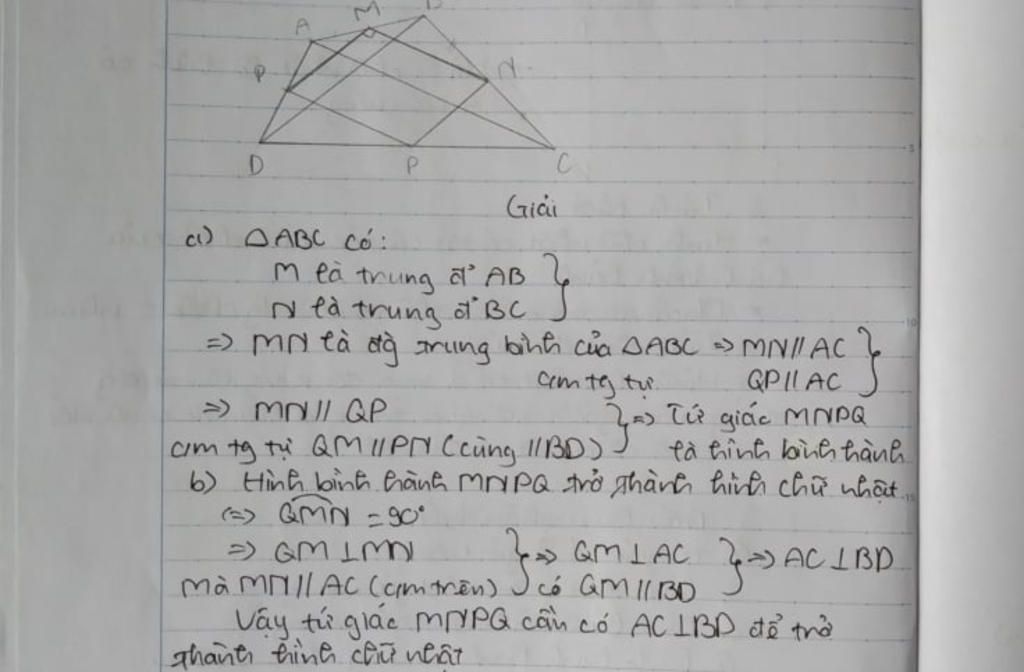 A M B
P N
D P C
Giải
a) △ABC có:
M là trung đ' AB }
N là trung đ' BC
=> MN là đg trung bình của △ABC => MN // AC }
cm tg tự QP // AC
=> MN // QP } => Tứ giác MNPQ
cm tg tự QM // PN (cùng // BD) là hình bình hành
b) Hình bình hành MNPQ trở thành hình chữ nhật
<=> QMN = 90°
=> QM ⊥ MN } => QM ⊥ AC } => AC ⊥ BD
mà MN // AC (cm trên) có QM // BD
Vậy tứ giác MNPQ cần có AC ⊥ BD để trở
thành hình chữ nhật